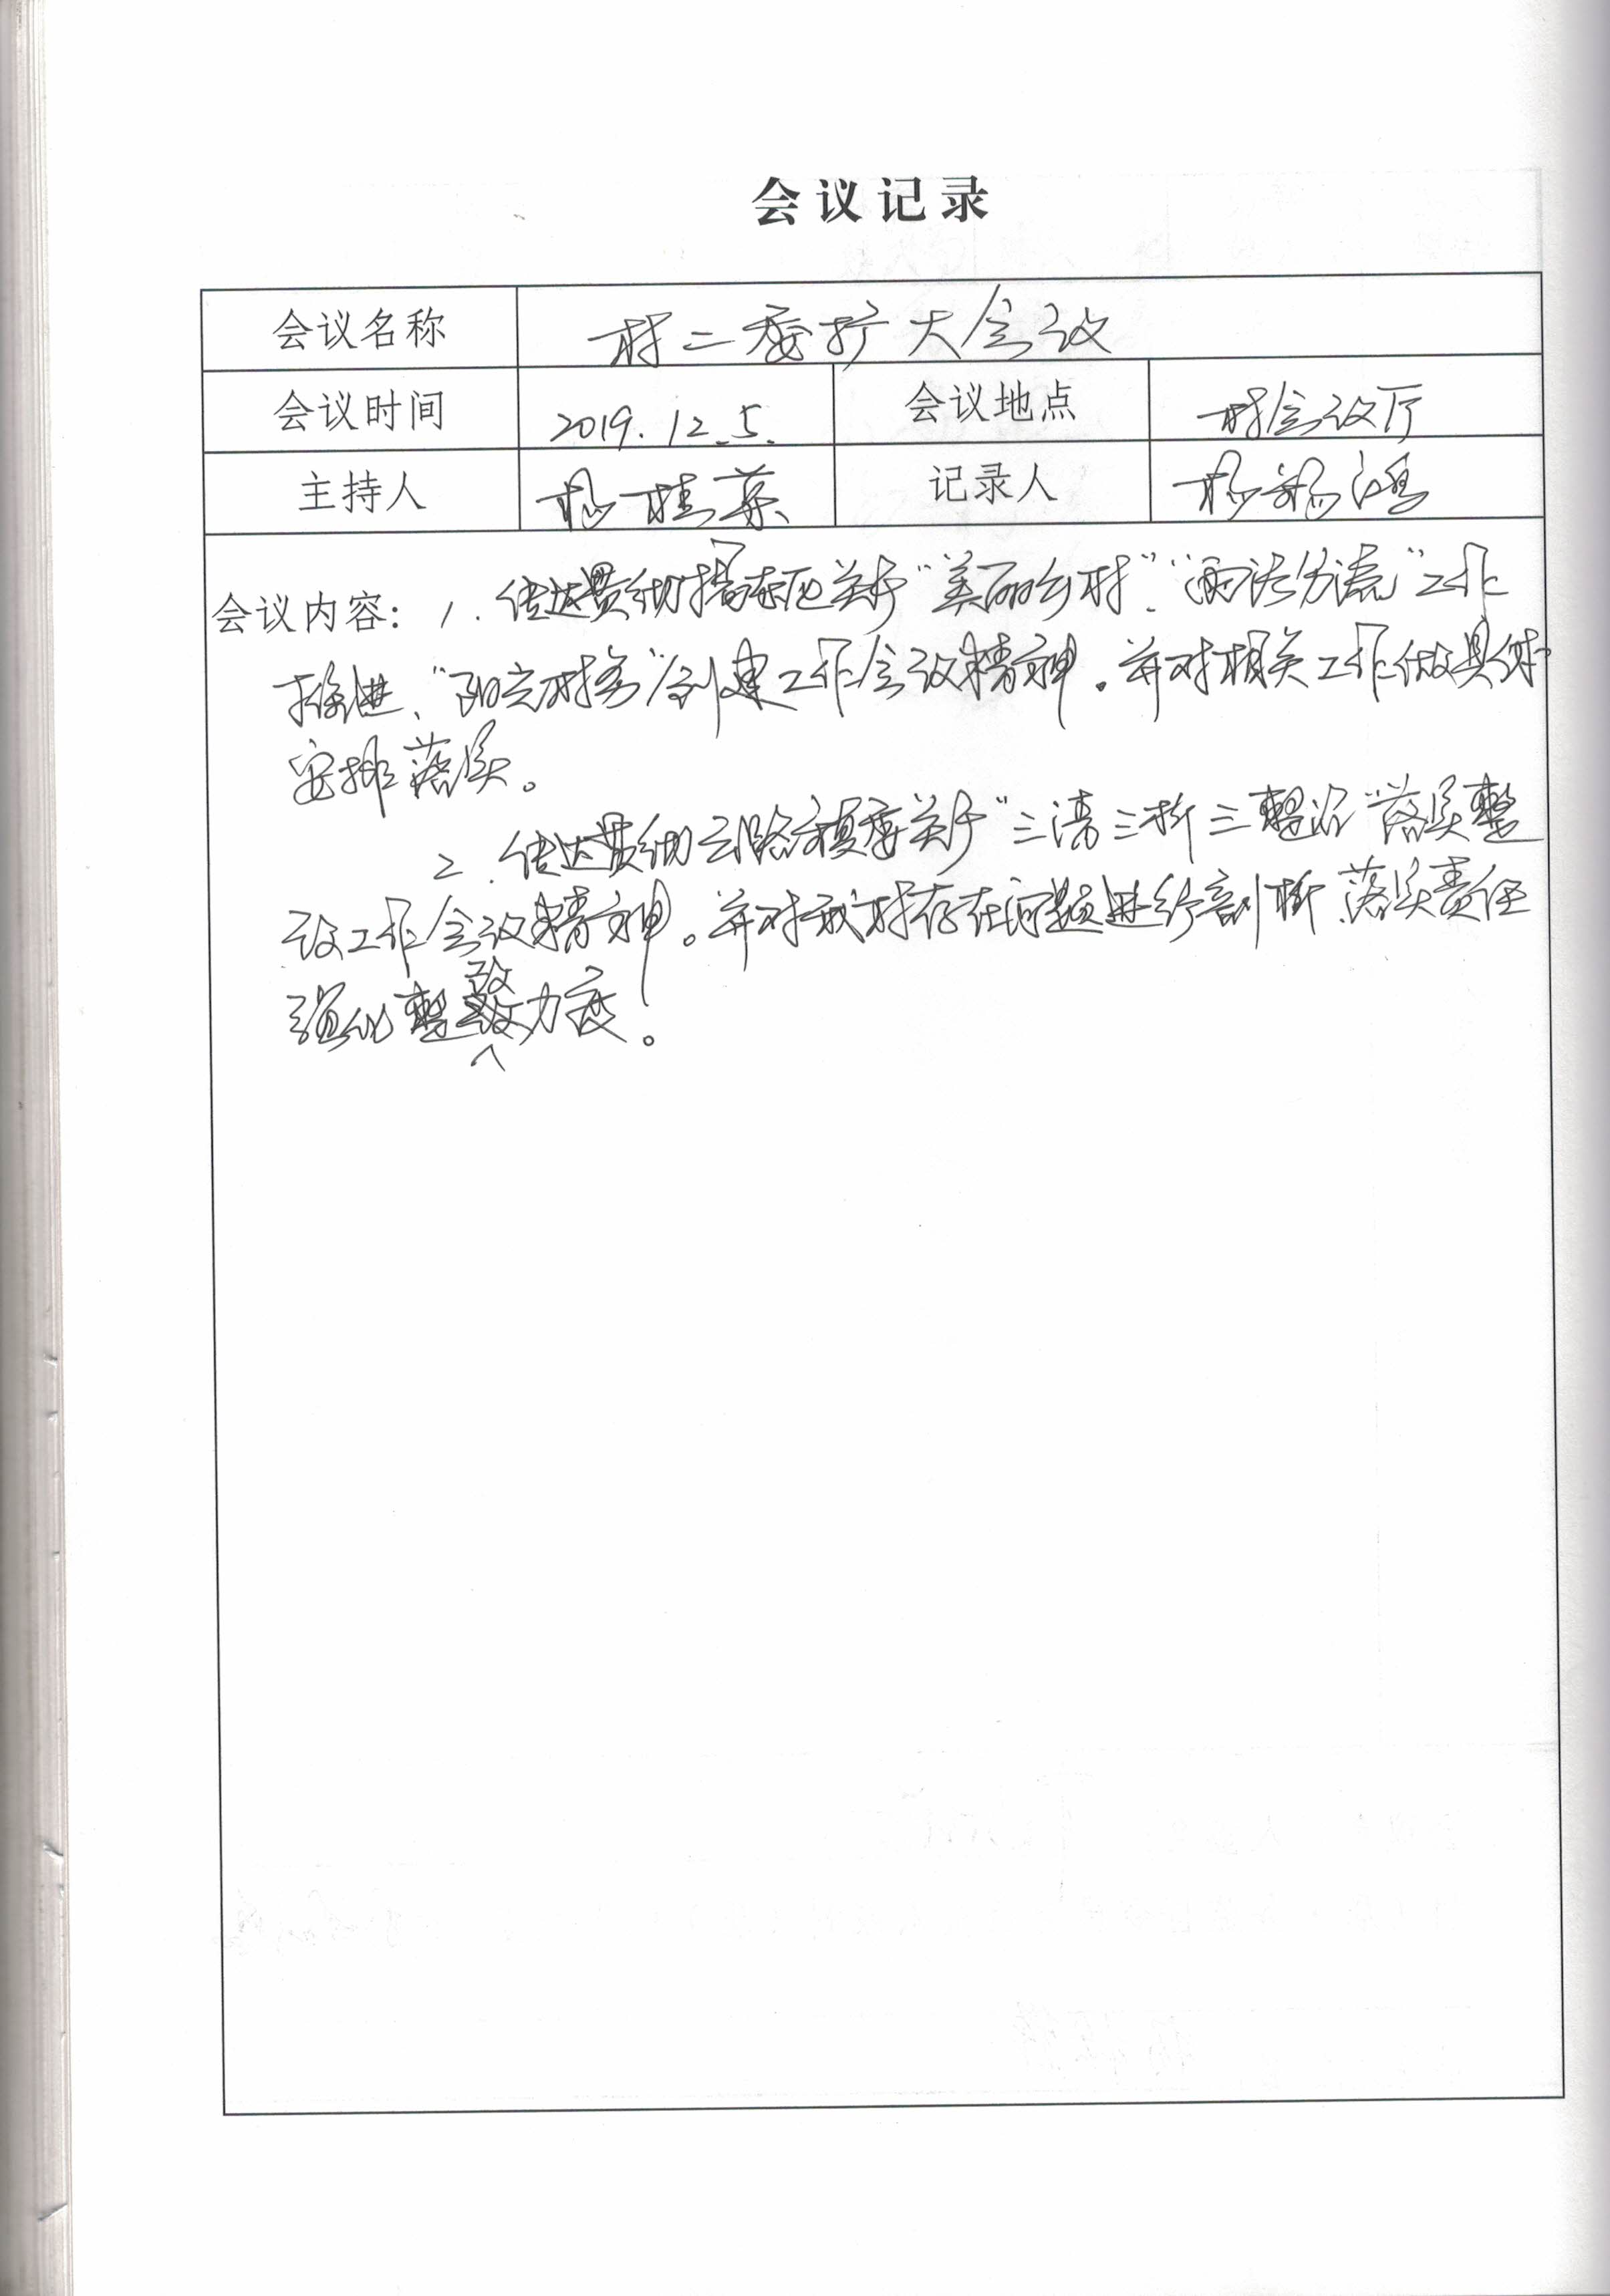 会议记录
会议名称 村二委扩大会议
会议时间 2019.12.5. 会议地点 村会议厅
主持人 杨桂英 记录人 杨锡鸿
会议内容：1.传达贯彻揭东区关于“美丽乡村”、“雨污分流”工作
推进、“阳光村务”创建工作会议精神。并对相关工作做具体
安排落实。
2.传达贯彻云路镇委关于“三清三拆三整治”落实整
改工作会议精神。并对我村存在问题进行剖析、落实责任
强化整改力度。